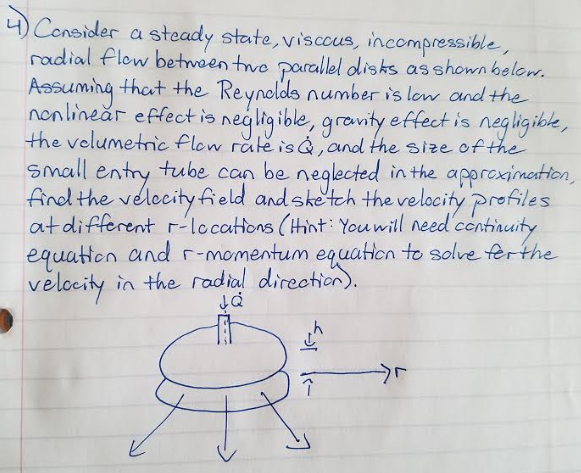 4) Consider a steady state, viscous, incompressible,
radial flow between two parallel disks as shown below.
Assuming that the Reynolds number is low and the
nonlinear effect is negligible, gravity effect is negligible,
the volumetric flow rate is Q̇, and the size of the
small entry tube can be neglected in the approximation,
find the velocity field and sketch the velocity profiles
at different r-locations (Hint: You will need continuity
equation and r-momentum equation to solve for the
velocity in the radial direction).
Q̇
h
r